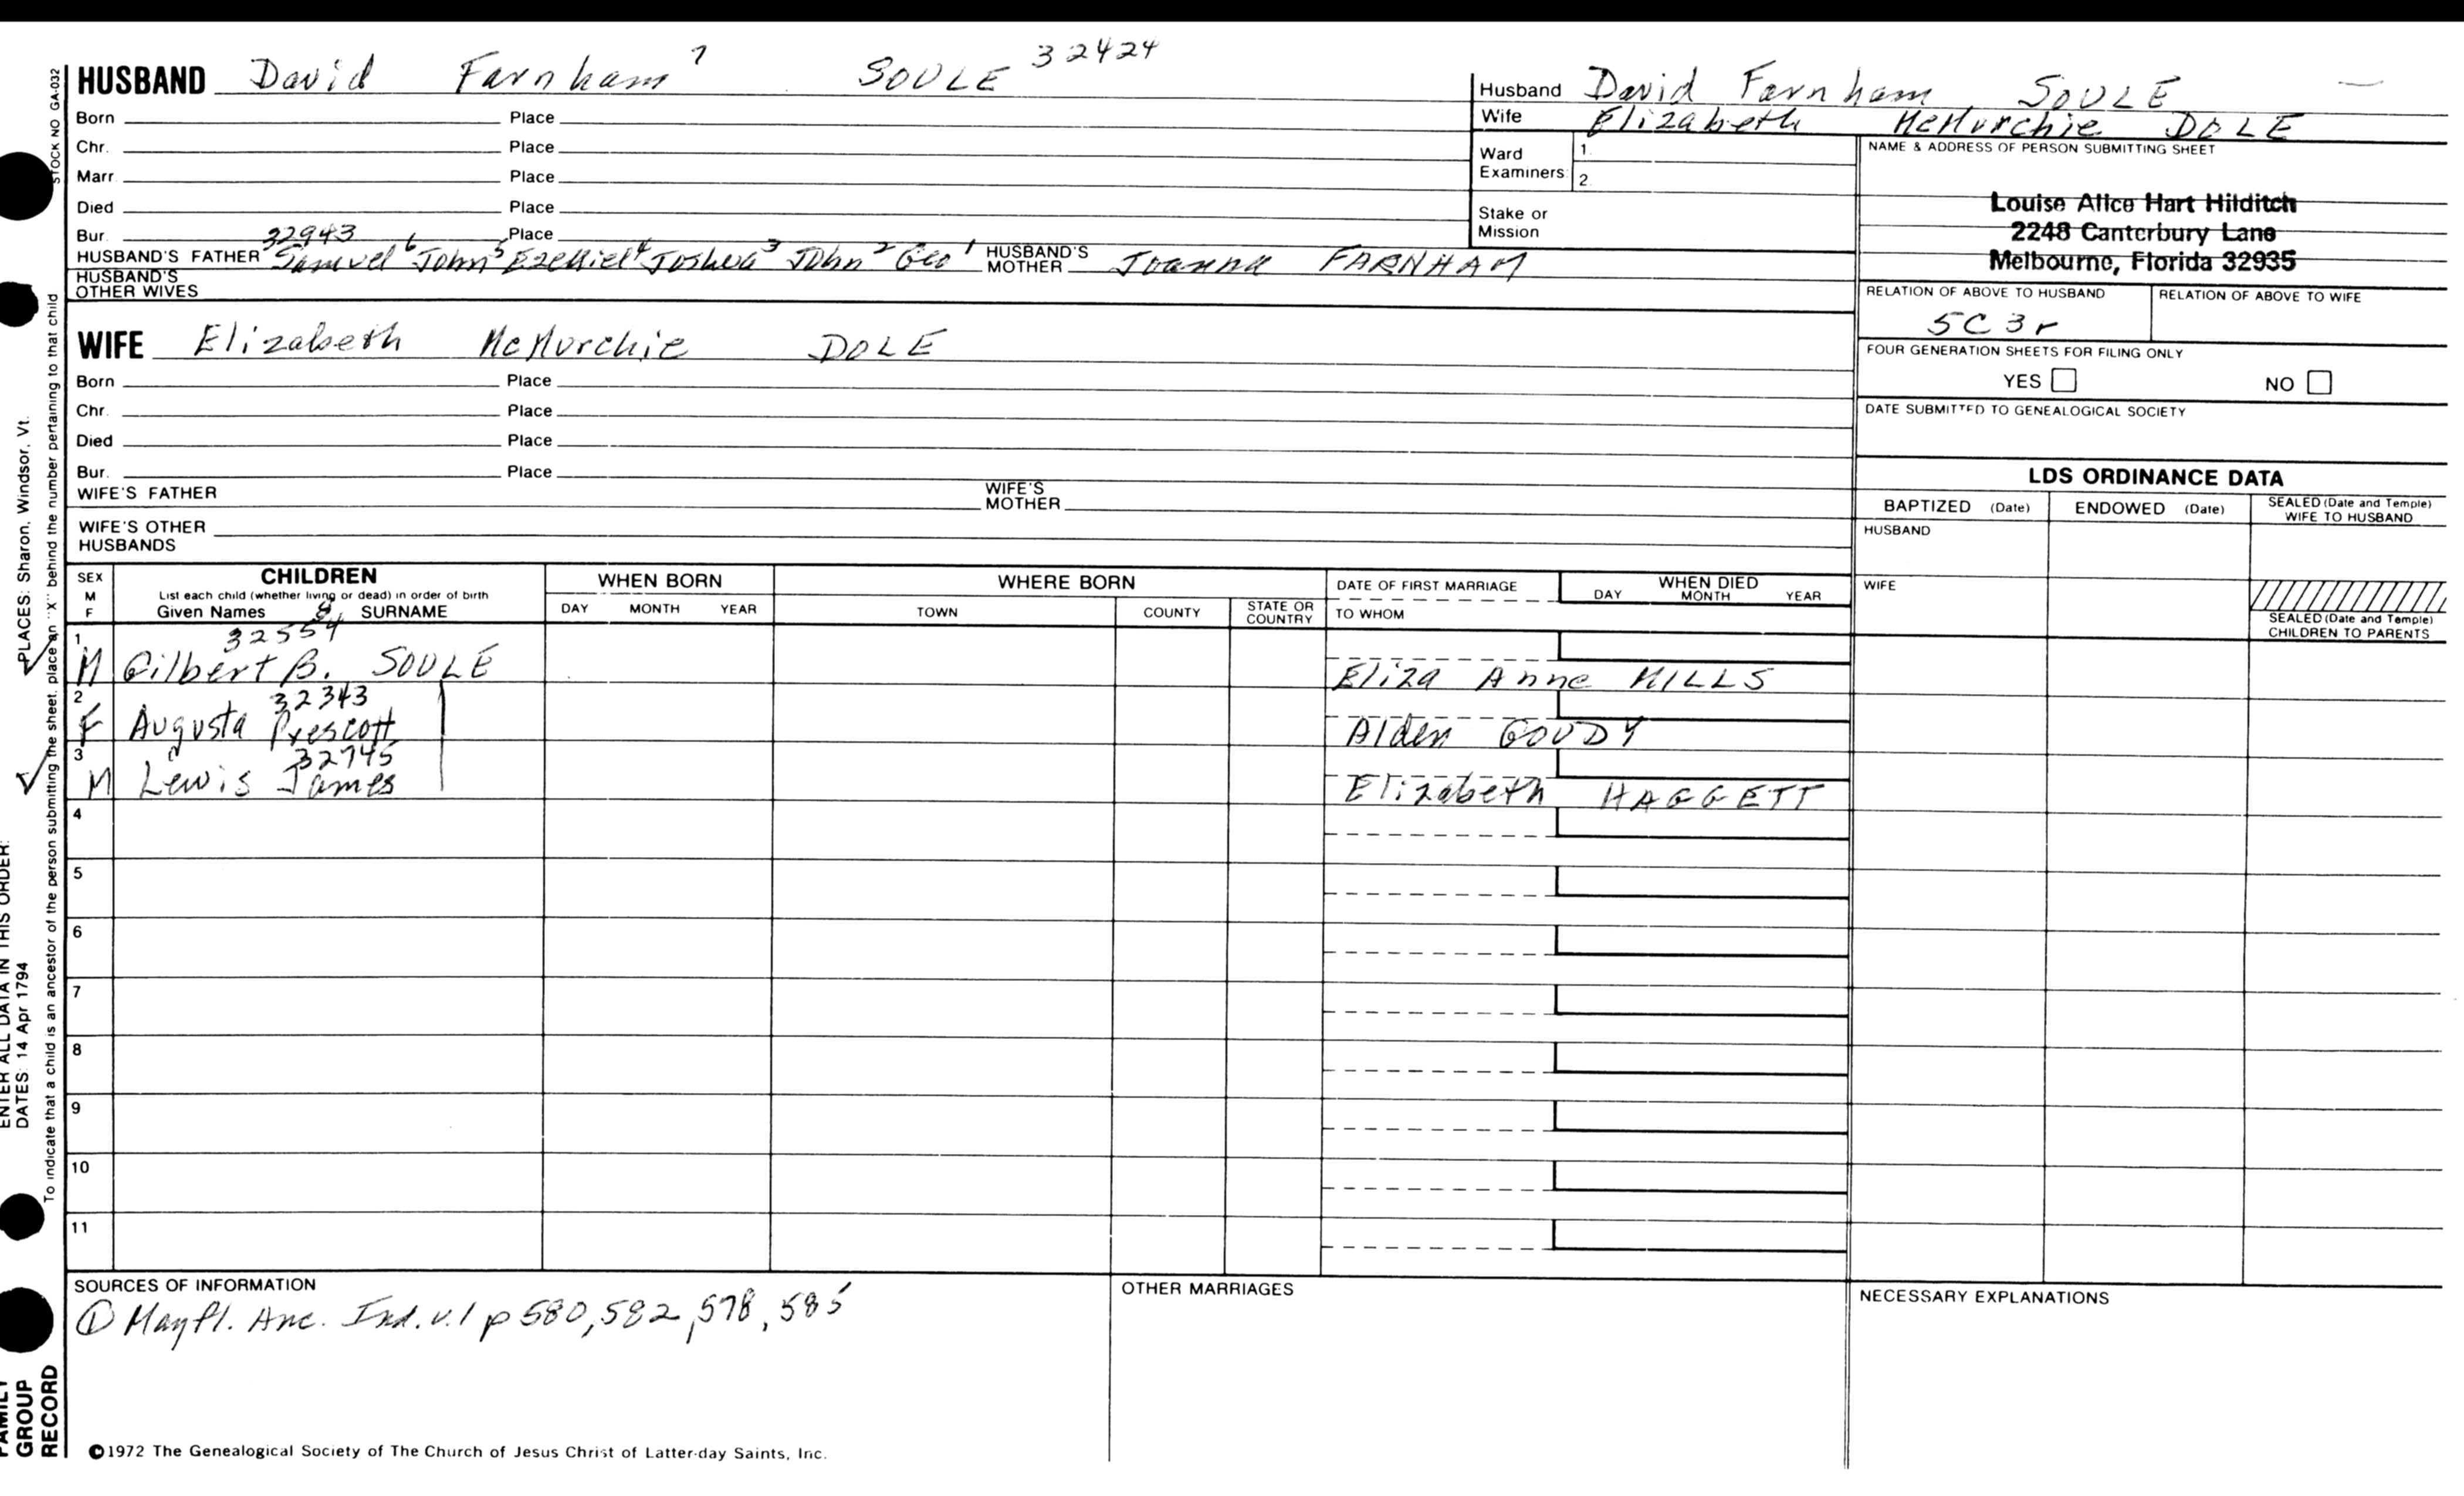 HUSBAND David Farnham 7 SOULE 32424
Born Place
Chr. Place
Marr Place
Died Place
Bur. Place
32943
HUSBAND'S FATHER Samuel 6 John 5 Ezekiel 4 Joshua 3 John 2 Geo 1 HUSBAND'S MOTHER Joanna FARNHAM
HUSBAND'S OTHER WIVES
WIFE Elizabeth McMurchie DOLE
Born Place
Chr. Place
Died Place
Bur. Place
WIFE'S FATHER WIFE'S MOTHER
WIFE'S OTHER HUSBANDS
Husband David Farnham SOULE
Wife Elizabeth McMurchie DOLE
Ward Examiners 1. 2.
Stake or Mission
NAME & ADDRESS OF PERSON SUBMITTING SHEET
Louise Alice Hart Hilditch
2248 Canterbury Lane
Melbourne, Florida 32935
RELATION OF ABOVE TO HUSBAND RELATION OF ABOVE TO WIFE
5C3r
FOUR GENERATION SHEETS FOR FILING ONLY
YES NO
DATE SUBMITTED TO GENEALOGICAL SOCIETY
LDS ORDINANCE DATA
BAPTIZED (Date) ENDOWED (Date) SEALED (Date and Temple) WIFE TO HUSBAND
HUSBAND
WIFE
SEALED (Date and Temple) CHILDREN TO PARENTS
SEX M F CHILDREN WHEN BORN WHERE BORN DATE OF FIRST MARRIAGE WHEN DIED
List each child (whether living or dead) in order of birth
Given Names 8 SURNAME DAY MONTH YEAR TOWN COUNTY STATE OR COUNTRY TO WHOM DAY MONTH YEAR
32554
1 M Gilbert B. SOULE Eliza Anne MILLS
32343
2 F Augusta Prescott Alden GOUDY
32745
3 M Lewis James Elizabeth HAGGETT
4
5
6
7
8
9
10
11
SOURCES OF INFORMATION
① Mayfl. Anc. Ind. v.1 p 580,582,578,585
OTHER MARRIAGES
NECESSARY EXPLANATIONS
©1972 The Genealogical Society of The Church of Jesus Christ of Latter-day Saints, Inc.
STOCK NO GA-032
To indicate that a child is an ancestor of the person submitting the sheet, place an "X" behind the number pertaining to that child
PLACES: Sharon, Windsor, Vt.
ENTER ALL DATA IN THIS ORDER:
DATES: 14 Apr 1794
FAMILY GROUP RECORD